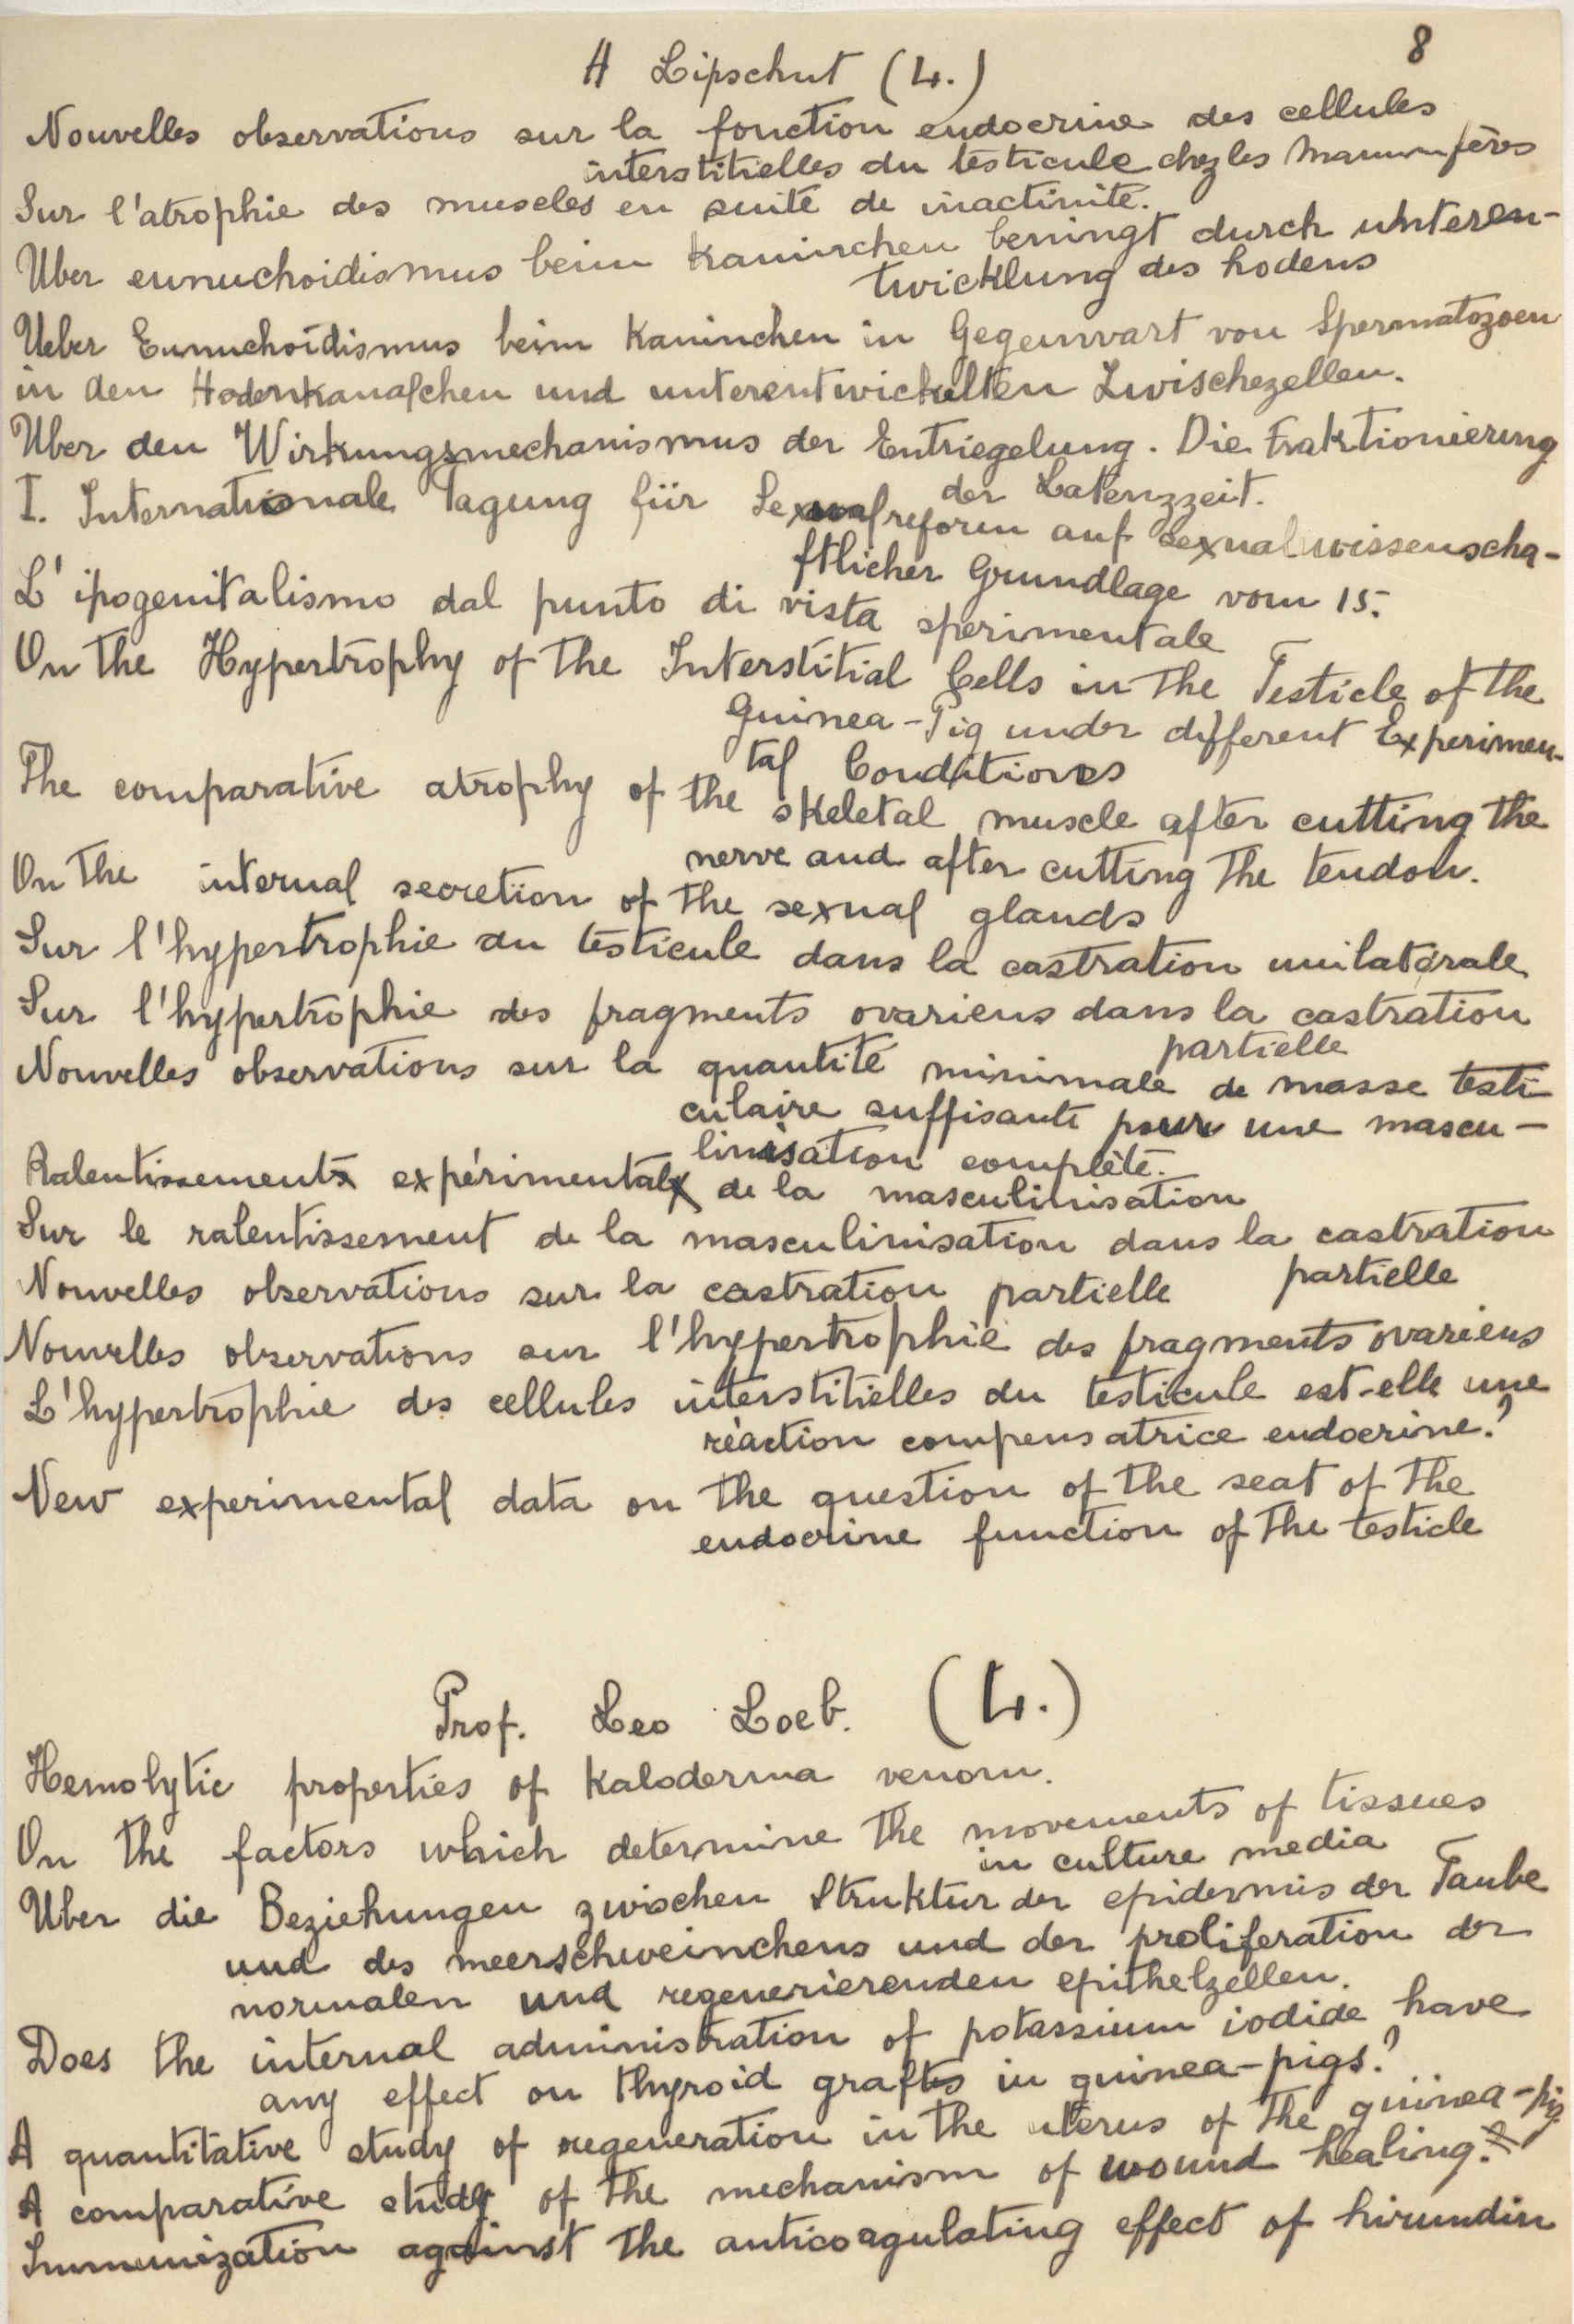 8
A Lipschut (L.)
Nouvelles observations sur la fonction endocrine des cellules
interstitielles du testicule chez les Mammifères
Sur l'atrophie des muscles en suite de inactivité.
Uber eunuchoidismus beim Kaninchen beningt durch unteren-
twicklung des hodens
Ueber Eunuchoidismus beim Kaninchen in Gegenwart von Spermatozoen
in den Hodenkanalchen und unterentwickelten Zwischezellen.
Uber den Wirkungsmechanismus der Entriegelung. Die Fraktionierung
der Latenzzeit.
I. Internationale Tagung für Sexualreform auf sexualwissenscha-
ftlicher Grundlage vom 15.
L'ipogenitalismo dal punto di vista sperimentale
On the Hypertrophy of the Interstitial Cells in the Testicle of the
Guinea-Pig under different Experimen-
tal Conditions
The comparative atrophy of the skeletal muscle after cutting the
nerve and after cutting the tendon.
On the internal secretion of the sexual glands
Sur l'hypertrophie du testicule dans la castration unilatérale
Sur l'hypertrophie des fragments ovariens dans la castration
partielle
Nouvelles observations sur la quantité minimale de masse testi
culaire suffisante pour une mascu-
linisation complète.
Ralentissement expérimental de la masculinisation
Sur le ralentissement de la masculinisation dans la castration
partielle
Nouvelles observations sur la castration partielle
Nouvelles observations sur l'hypertrophie des fragments ovariens
L'hypertrophie des cellules interstitielles du testicule est-elle une
réaction compensatrice endocrine?
New experimental data on the question of the seat of the
endocrine function of the testicle
Prof. Leo Loeb. (L.)
Hemolytic properties of kaloderma venom.
On the factors which determine the movements of tissues
in culture media
Uber die Beziehungen zwischen Struktur der epidermis der Taube
und des meerschweinchens und der proliferation der
normalen und regenerierenden epithelzellen.
Does the internal administration of potassium iodide have
any effect on thyroid grafts in guinea-pigs?
A quantitative study of regeneration in the uterus of the guinea-pig
A comparative study of the mechanism of wound healing.
Immunization against the anticoagulating effect of hirundin